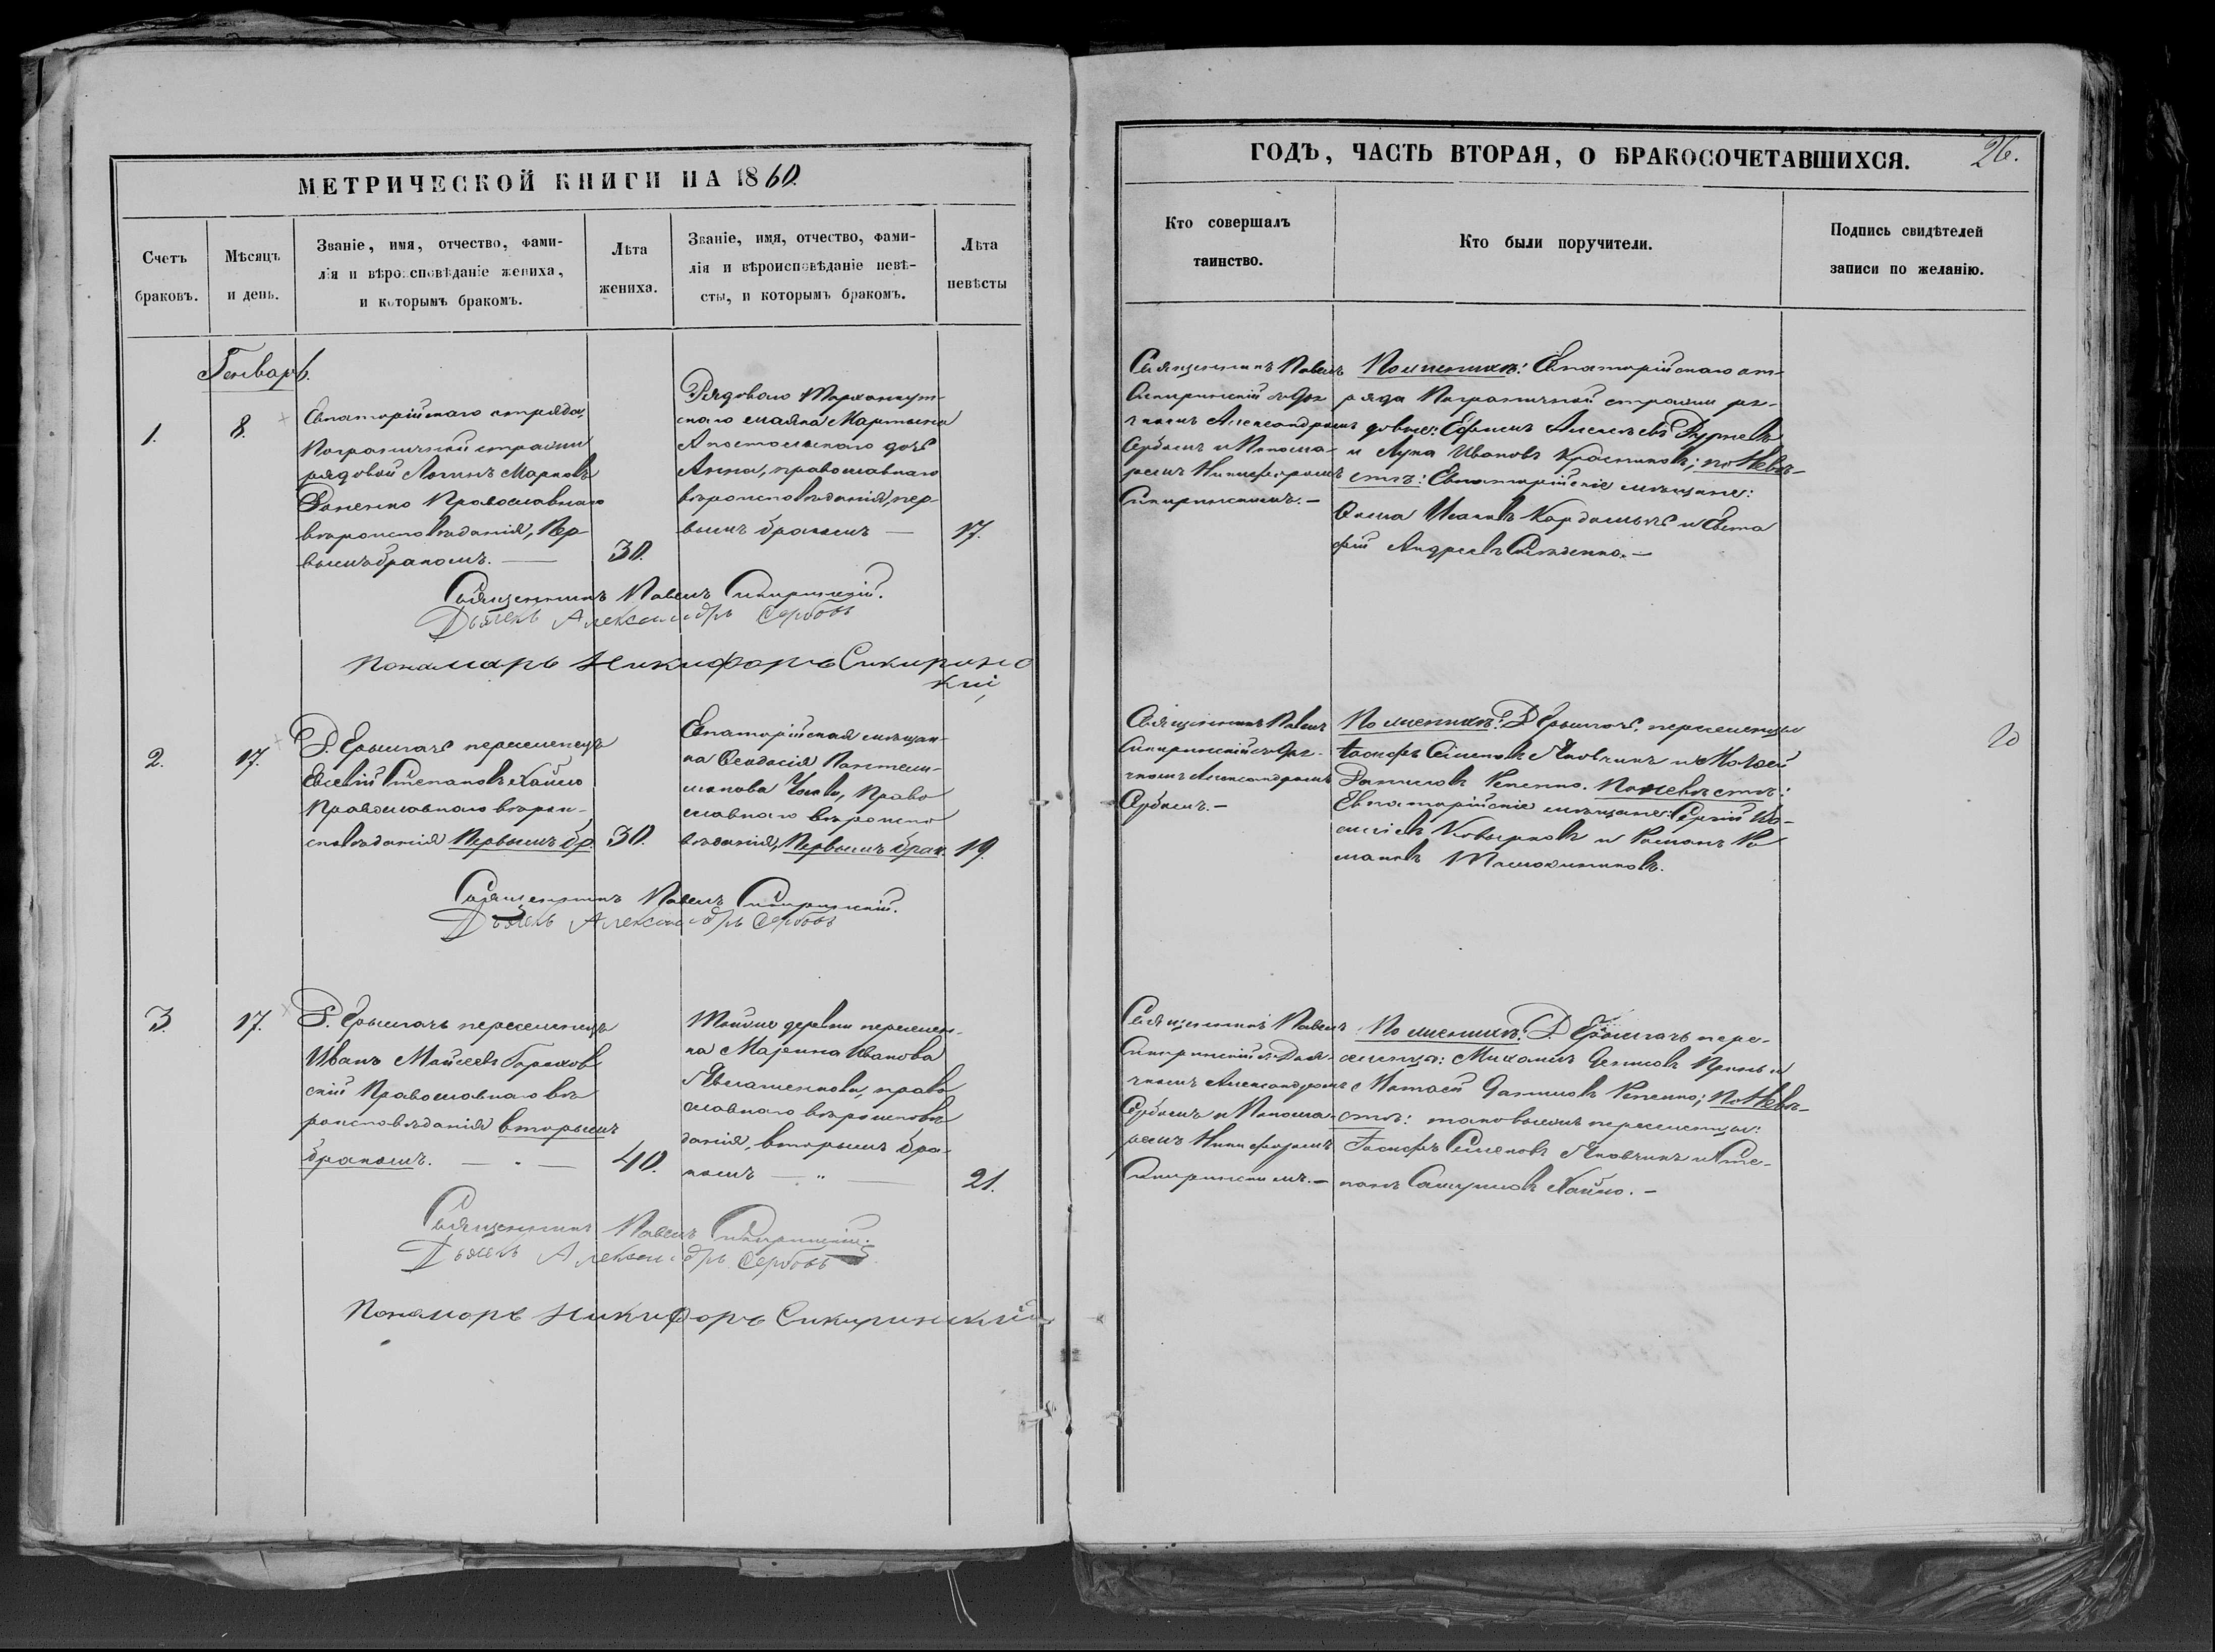 МЕТРИЧЕСКОЙ КНИГИ НА 1860.
Счетъ браковъ.
Мѣсяцъ и день.
Званіе, имя, отчество, фами-
лія и вѣроисповѣданіе жениха,
и которымъ бракомъ.
Лѣта
жениха.
Званіе, имя, отчество, фами-
лія и вѣроисповѣданіе невѣ-
сты, и которымъ бракомъ.
Лѣта
невѣсты
Генварь.
1.
8.
Евпаторійскаго отряда,
Пограничной стражи
рядовой Логинъ Марковъ
Доненко Православнаго
вѣроисповѣданія, Пер-
вымъ бракомъ.
30.
Рядоваго Тарханкут-
скаго маяка Мартына
Апостольскаго дочь
Анна, православнаго
вѣроисповѣданія, пер-
вымъ бракомъ —
17.
Священникъ Павелъ Сикиринскій.
Дьячекъ Александръ Сербовъ
Пономарь Никифоръ Сикиринс
кій
2.
17.
Д. Ерымгачъ переселенецъ
Евсевій Степановъ Хайло
Православнаго вѣрои-
сповѣданія Первымъ бр.
30.
Евпаторійская мѣщан-
ка Ѳеодосія Пантели-
монова, Право
славнаго вѣроиспо
вѣданія, Первымъ брак.
19.
Священникъ Павелъ Сикиринскій.
Дьячекъ Александръ Сербовъ
3.
17.
Д. Ерымгачъ переселенецъ
Иванъ Мойсеевъ
скій Православнаго вѣ
роисповѣданія вторымъ
бракомъ. — „ —
40.
Тойже деревни переселен-
ка Марина Иванова
право
славнаго вѣроисповѣ
данія, вторымъ бра-
комъ — „ —
21.
Священникъ Павелъ Сикиринскій.
Дьячекъ Александръ Сербовъ
Пономарь Никифоръ Сикиринскій
ГОДЪ, ЧАСТЬ ВТОРАЯ, О БРАКОСОЧЕТАВШИХСЯ.
26.
Кто совершалъ
таинство.
Кто были поручители.
Подпись свидѣтелей
записи по желанію.
Священникъ Павелъ
Сикиринскій съ Дья
чкомъ Александромъ
Сербовымъ и Понома-
ремъ Никифоромъ
Сикиринскимъ. —
По женихѣ: Евпаторійскаго от-
ряда Пограничной стражи ря-
довые: Ефимъ Алексѣевъ
и Лука Ивановъ Красниковъ; по Невѣ-
стѣ: Евпаторійскіе мѣщане:
Ѳома Исаевъ и Евста
фій Андреевъ
Священникъ Павелъ
Сикиринскій съ Дья-
чкомъ Александромъ
Сербовымъ. —
По женихѣ: Д. Ерымгачъ, переселенцы
Іосифъ Семеновъ Яковчикъ и Мойсей
Даниловъ Репенко. По невѣстѣ:
Евпаторійскіе мѣщане: Сергій Ва-
сильевъ Ковырковъ и Романъ Ро
мановъ
Священникъ Павелъ
Сикиринскій съ Дья-
чкомъ Александромъ
Сербовымъ и Понома-
ремъ Никифоромъ
Сикиринскимъ. —
По женихѣ: Д. Ерымгачъ пере-
селенцы: Михаилъ Денисовъ и
Даниловъ Репенко; По Невѣ-
стѣ: таковыеже переселенцы:
Іосифъ Семеновъ Яковчикъ и Сте-
панъ Самуиловъ Хайло. —